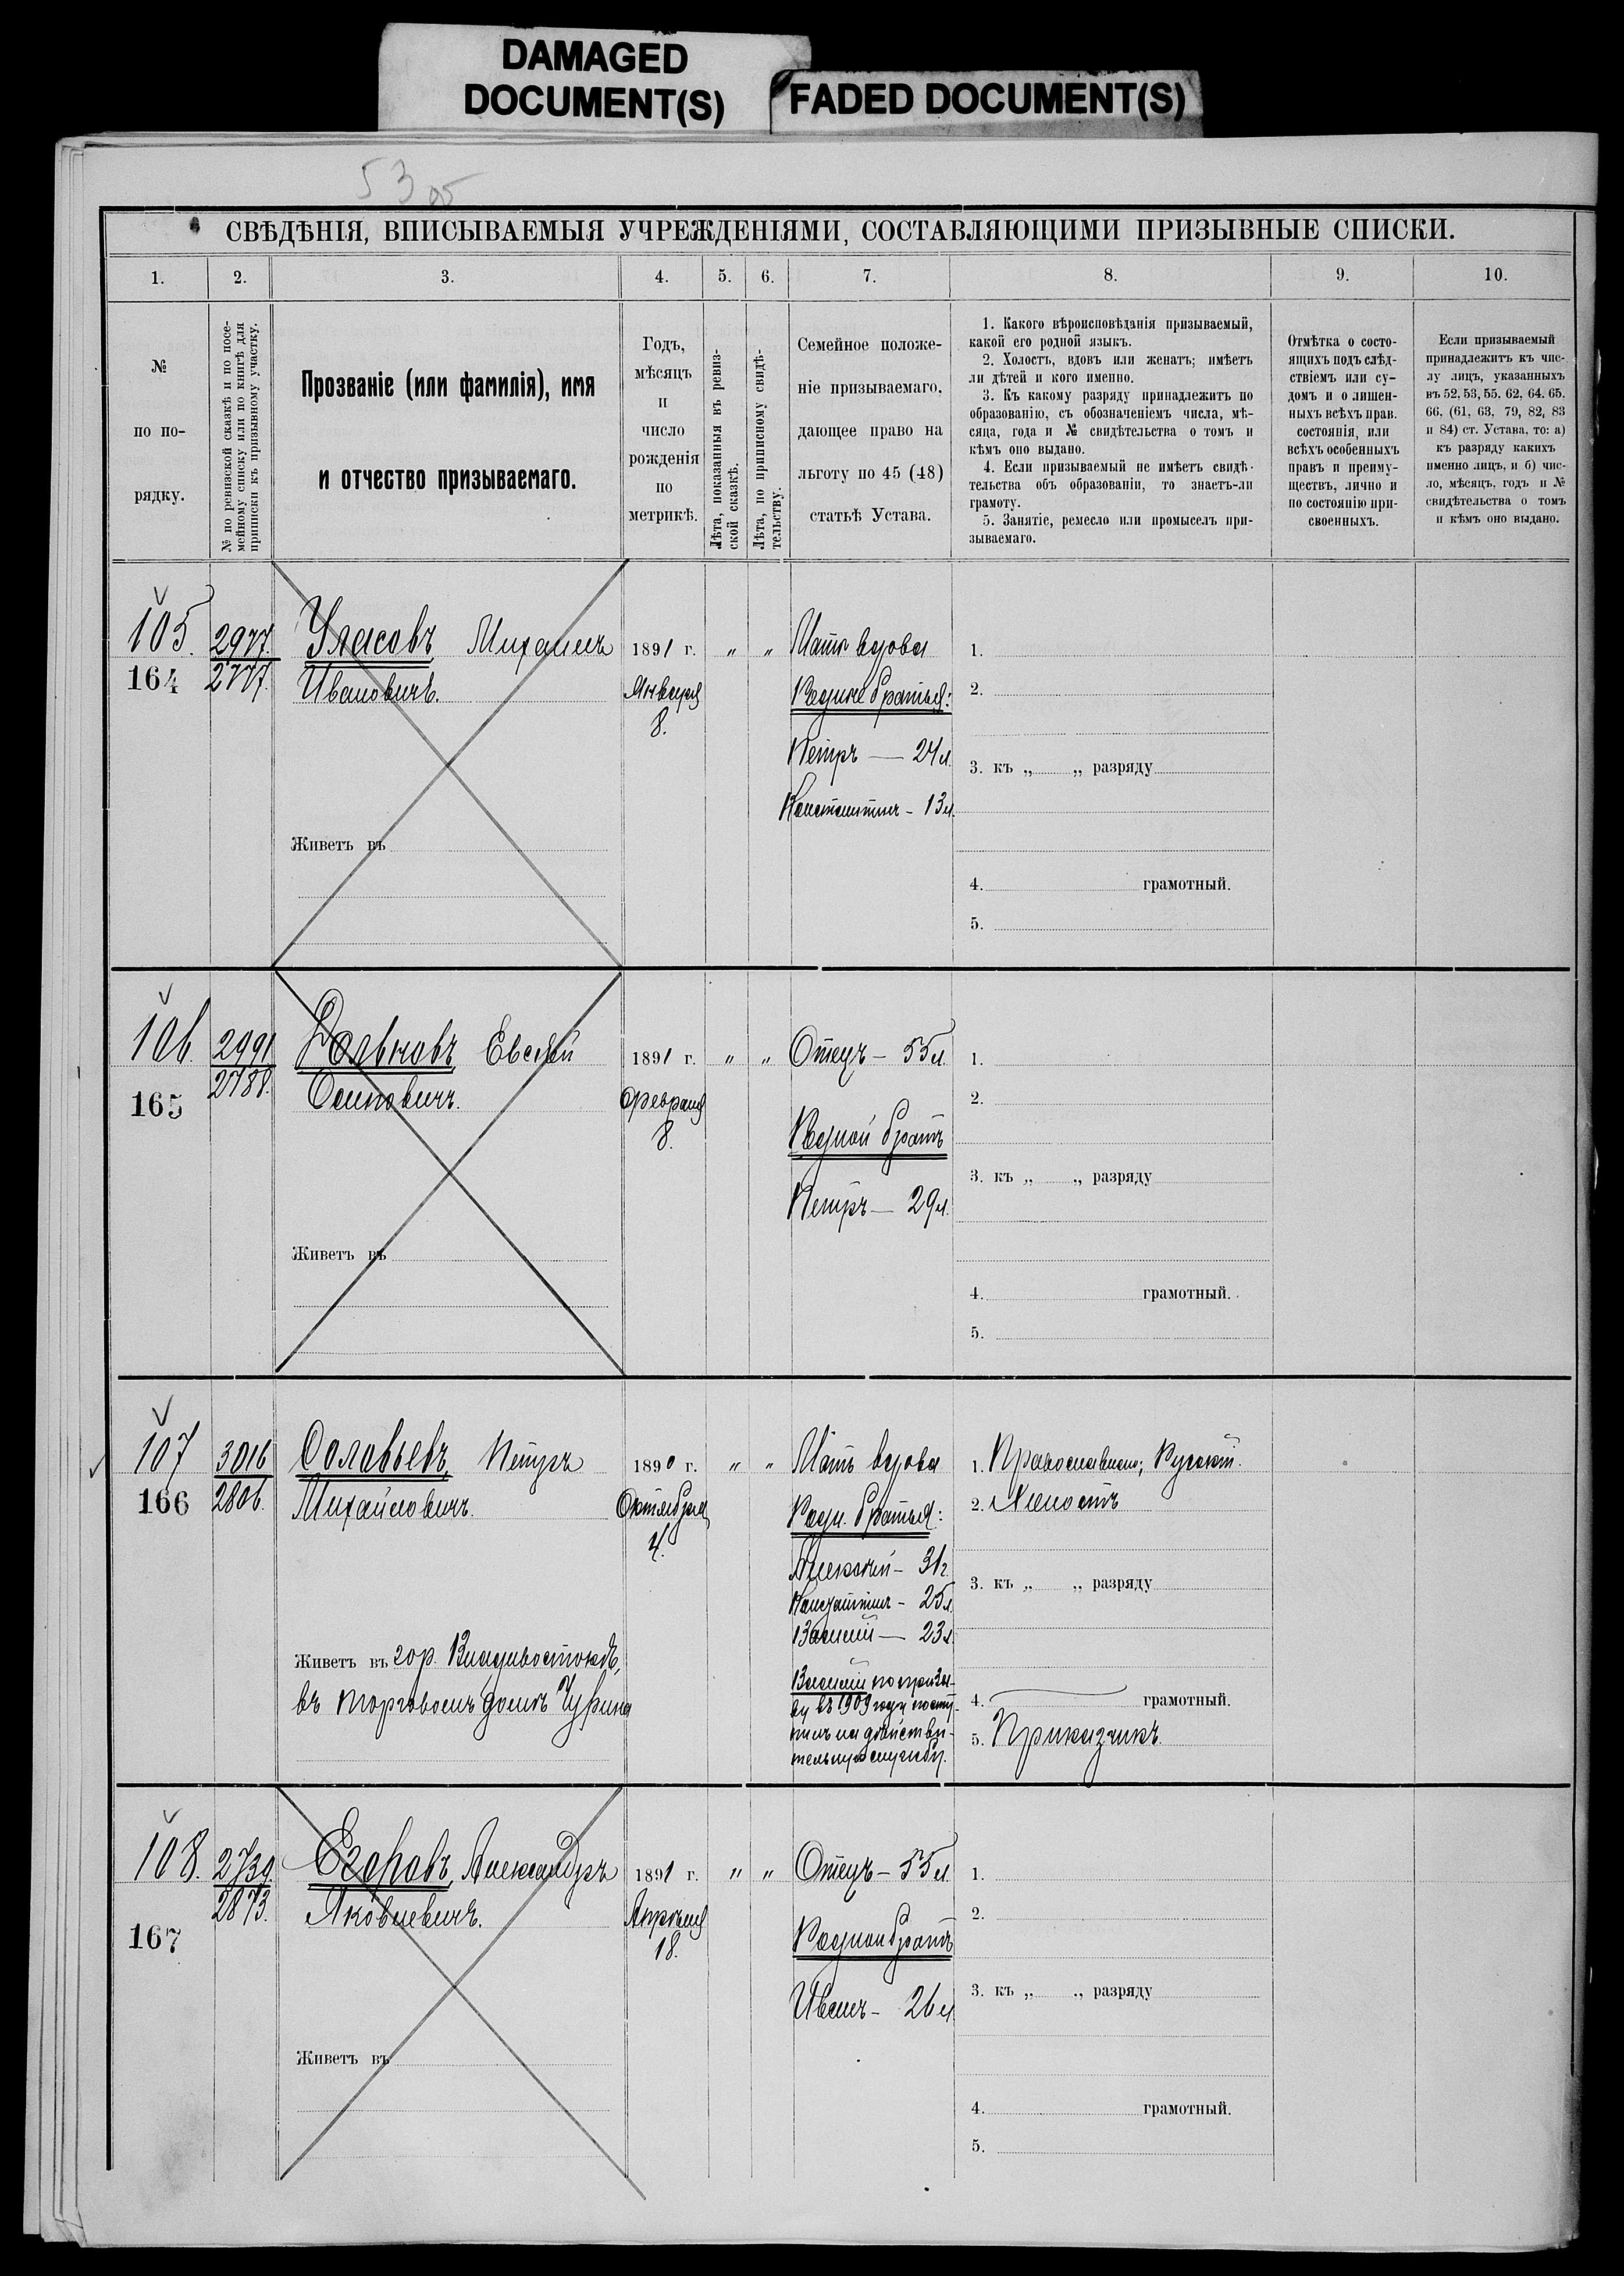 DAMAGED
DOCUMENT(S)
FADED DOCUMENT(S)
53 об
СВѢДѢНІЯ, ВПИСЫВАЕМЫЯ УЧРЕЖДЕНІЯМИ, СОСТАВЛЯЮЩИМИ ПРИЗЫВНЫЕ СПИСКИ.
1. 2. 3. 4. 5. 6. 7. 8. 9. 10.
№
по по-
рядку.
№ по ревизской сказкѣ и по посе-
мейному списку или по книгѣ для
приписки къ призывному участку.
Прозваніе (или фамилія), имя
и отчество призываемаго.
Годъ,
мѣсяцъ
и
число
рожденія
по
метрикѣ.
Лѣта, показанныя въ ревиз-
ской сказкѣ.
Лѣта, по приписному свидѣ-
тельству.
Семейное положе-
ніе призываемаго,
дающее право на
льготу по 45 (48)
статьѣ Устава.
1. Какого вѣроисповѣданія призываемый,
какой его родной языкъ.
2. Холостъ, вдовъ или женатъ; имѣетъ
ли дѣтей и кого именно.
3. Къ какому разряду принадлежитъ по
образованію, съ обозначеніемъ числа, мѣ-
сяца, года и № свидѣтельства о томъ и
кѣмъ оно выдано.
4. Если призываемый не имѣетъ свидѣ-
тельства объ образованіи, то знаетъ-ли
грамоту.
5. Занятіе, ремесло или промыселъ при-
зываемаго.
Отмѣтка о состо-
ящихъ подъ слѣд-
ствіемъ или су-
домъ и о лишен-
ныхъ всѣхъ прав.
состоянія, или
всѣхъ особенныхъ
правъ и преиму-
ществъ, лично и
по состоянію при-
своенныхъ.
Если призываемый
принадлежитъ къ чис-
лу лицъ, указанныхъ
въ 52, 53, 55. 62, 64. 65.
66. (61, 63, 79, 82, 83
и 84) ст. Устава, то: а)
къ разряду какихъ
именно лицъ, и б) чис-
ло, мѣсяцъ, годъ и №
свидѣтельства о томъ
и кѣмъ оно выдано.
105.
164
2977.
2777.
Михаилъ
Ивановичъ.
Живетъ въ
1891 г.
Января
8.
„ „
Мать вдова
Родные братья:
Петръ — 24 л.
Константинъ - 13 л.
1.
2.
3. къ „ „ разряду
4. грамотный.
5.
106.
165
2991
2788.
Евсей
Осиповичъ.
Живетъ въ
1891 г.
Февраля
8.
„ „
Отецъ - 55 л.
Родной братъ
Петръ — 29 л.
1.
2.
3. къ „ „ разряду
4. грамотный.
5.
107
166
3016
2806.
Соловьевъ, Петръ
Михайловичъ.
Живетъ въ гор. Владивостокѣ,
въ торговомъ домѣ Чурина
1890 г.
Октября
4.
„ „
Мать вдова
Родн. братья:
Алексѣй - 31 г.
Константинъ - 25 л.
Василій — 23 л.
Василій по призы-
ву въ 1909 году посту-
пилъ на дѣйстви-
тельную службу.
1. Православное; Русскій.
2. Холостъ
3. къ „ „ разряду
4. грамотный.
5. Приказчикъ.
108.
167
2739.
2873.
Егоровъ, Александръ
Яковлевичъ.
Живетъ въ
1891 г.
Апрѣля
18.
„ „
Отецъ - 55 л.
Родной братъ
Иванъ - 26 л.
1.
2.
3. къ „ „ разряду
4. грамотный.
5.